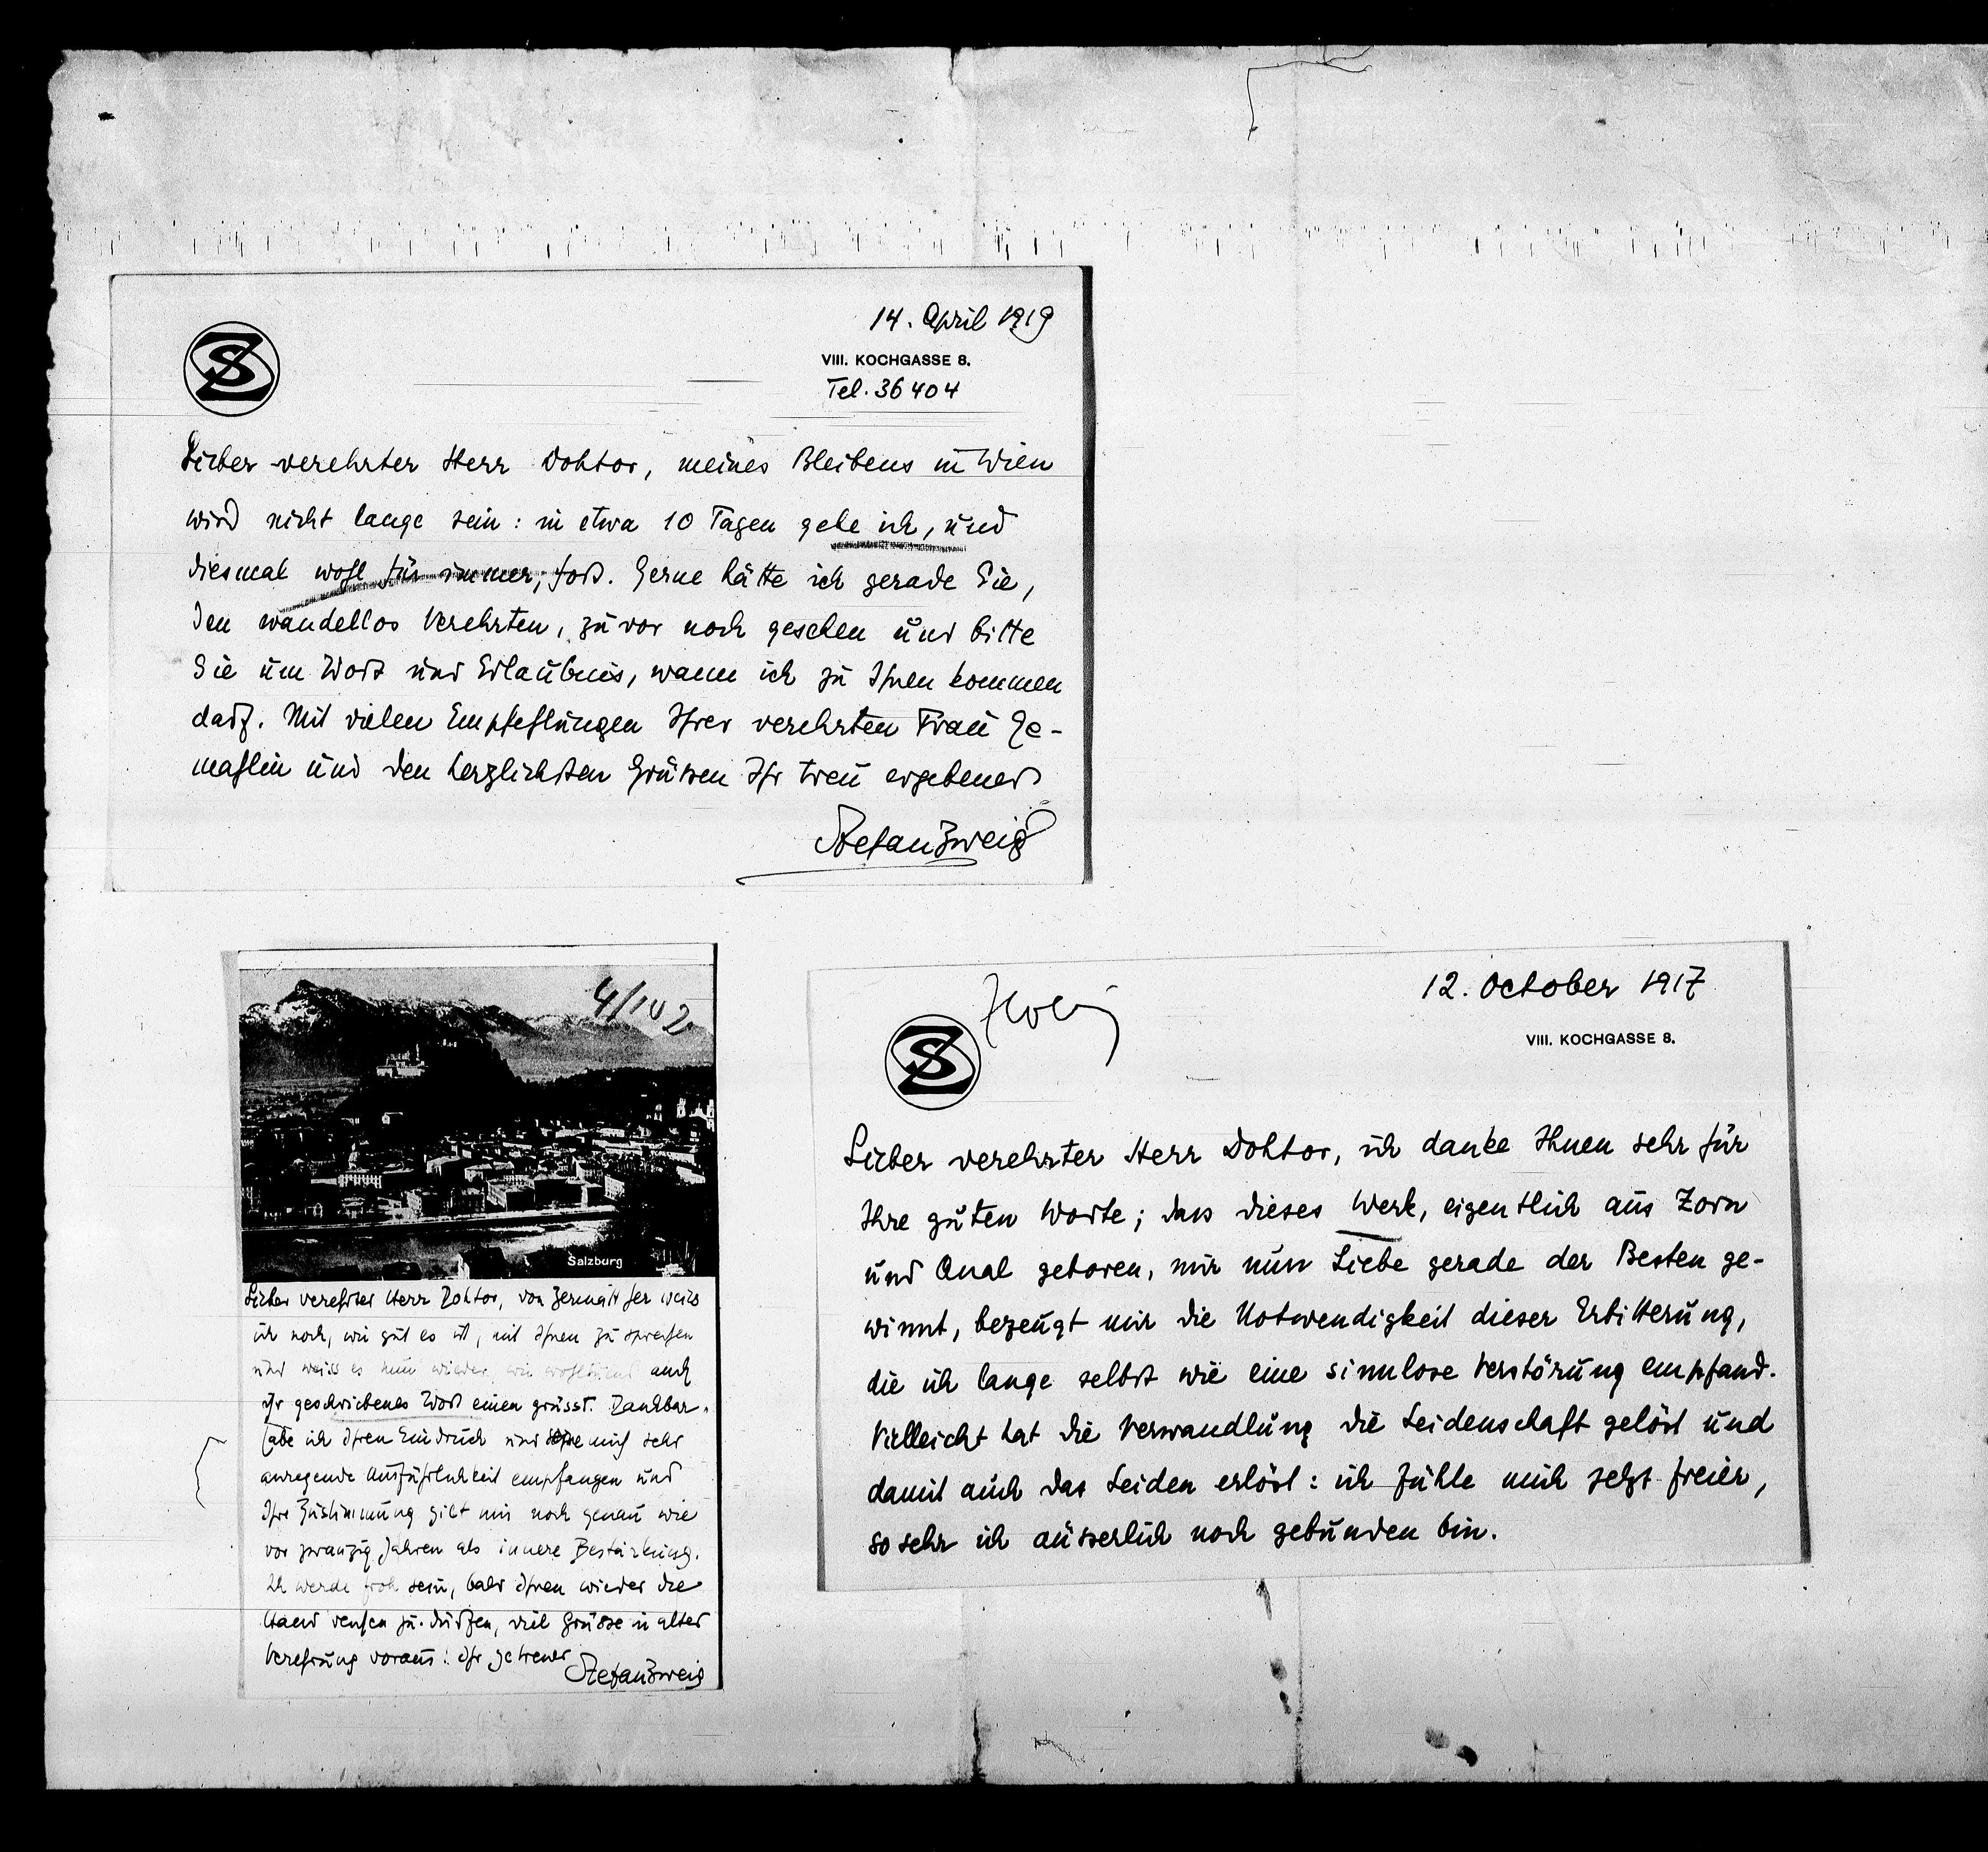 14. April 1919
SZ
VIII. KOCHGASSE 8.
Tel. 36404
Lieber verehrter Herr Doktor, meines Bleibens in Wien
wird nicht lange sein: in etwa 10 Tagen gehe ich, und
diesmal wohl für immer, fort. Gerne hätte ich gerade Sie,
den wandellos Verehrten, zuvor noch gesehen und bitte
Sie um Wort und Erlaubnis, wann ich zu Ihnen kommen
darf. Mit vielen Empfehlungen Ihrer verehrten Frau Ge-
mahlin und den herzlichsten Grüssen Ihr treu ergebener
Stefan Zweig
4/102
Salzburg
Lieber verehrter Herr Doktor, von Zermatt her weiss
ich noch, wie gut es ist, mit Ihnen zu sprechen
und weiss es nun wieder, wie wohltuend auch
Ihr geschriebenes Wort einen grüsst. Dankbar
habe ich Ihren Eindruck und Ihre mich sehr
anregende Ausführlichkeit empfangen und
Ihre Zustimmung gilt mir noch genau wie
vor zwanzig Jahren als innere Bestärkung.
Ich werde froh sein, bald Ihnen wieder die
Hand reichen zu dürfen, viel Grüsse in alter
Verehrung voraus! Ihr getreuer
Stefan Zweig
12. October 1917
SZ
VIII. KOCHGASSE 8.
Lieber verehrter Herr Doktor, ich danke Ihnen sehr für
Ihre guten Worte; dass dieses Werk, eigentlich aus Zorn
und Qual geboren, mir nun Liebe gerade der Besten ge-
winnt, bezeugt mir die Notwendigkeit dieser Erbitterung,
die ich lange selbst wie eine sinnlose Verstörung empfand.
Vielleicht hat die Verwandlung die Leidenschaft gelöst und
damit auch das Leiden erlöst: ich fühle mich jetzt freier,
so sehr ich äusserlich noch gebunden bin.